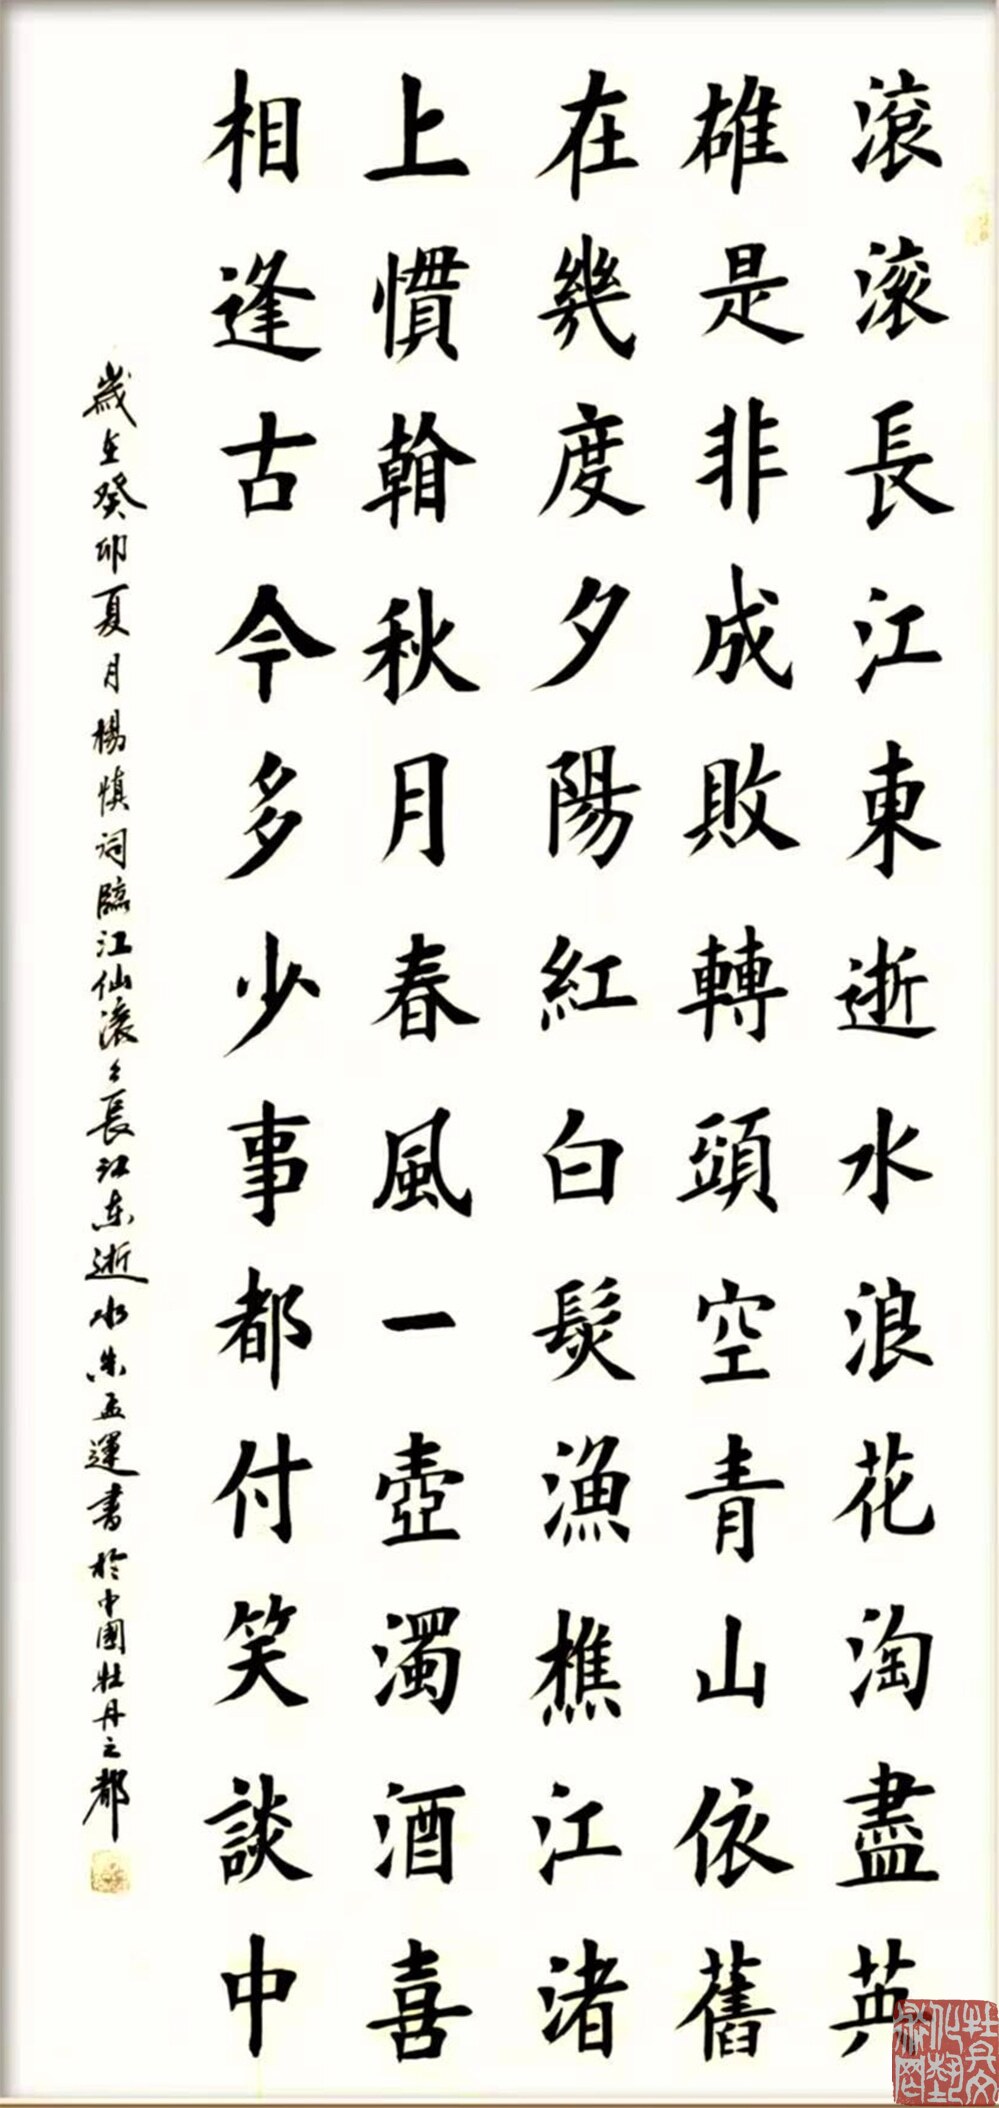 滾滚長江東逝水浪花淘盡英
雄是非成敗轉頭空青山依舊
在幾度夕陽紅白髮漁樵江渚
上慣看秋月春風一壺濁酒喜
相逢古今多少事都付笑談中
歲在癸卯夏月楊慎詞臨江仙滚々長江东逝水朱孟運書於中國牡丹之都
牡丹文化藝術网